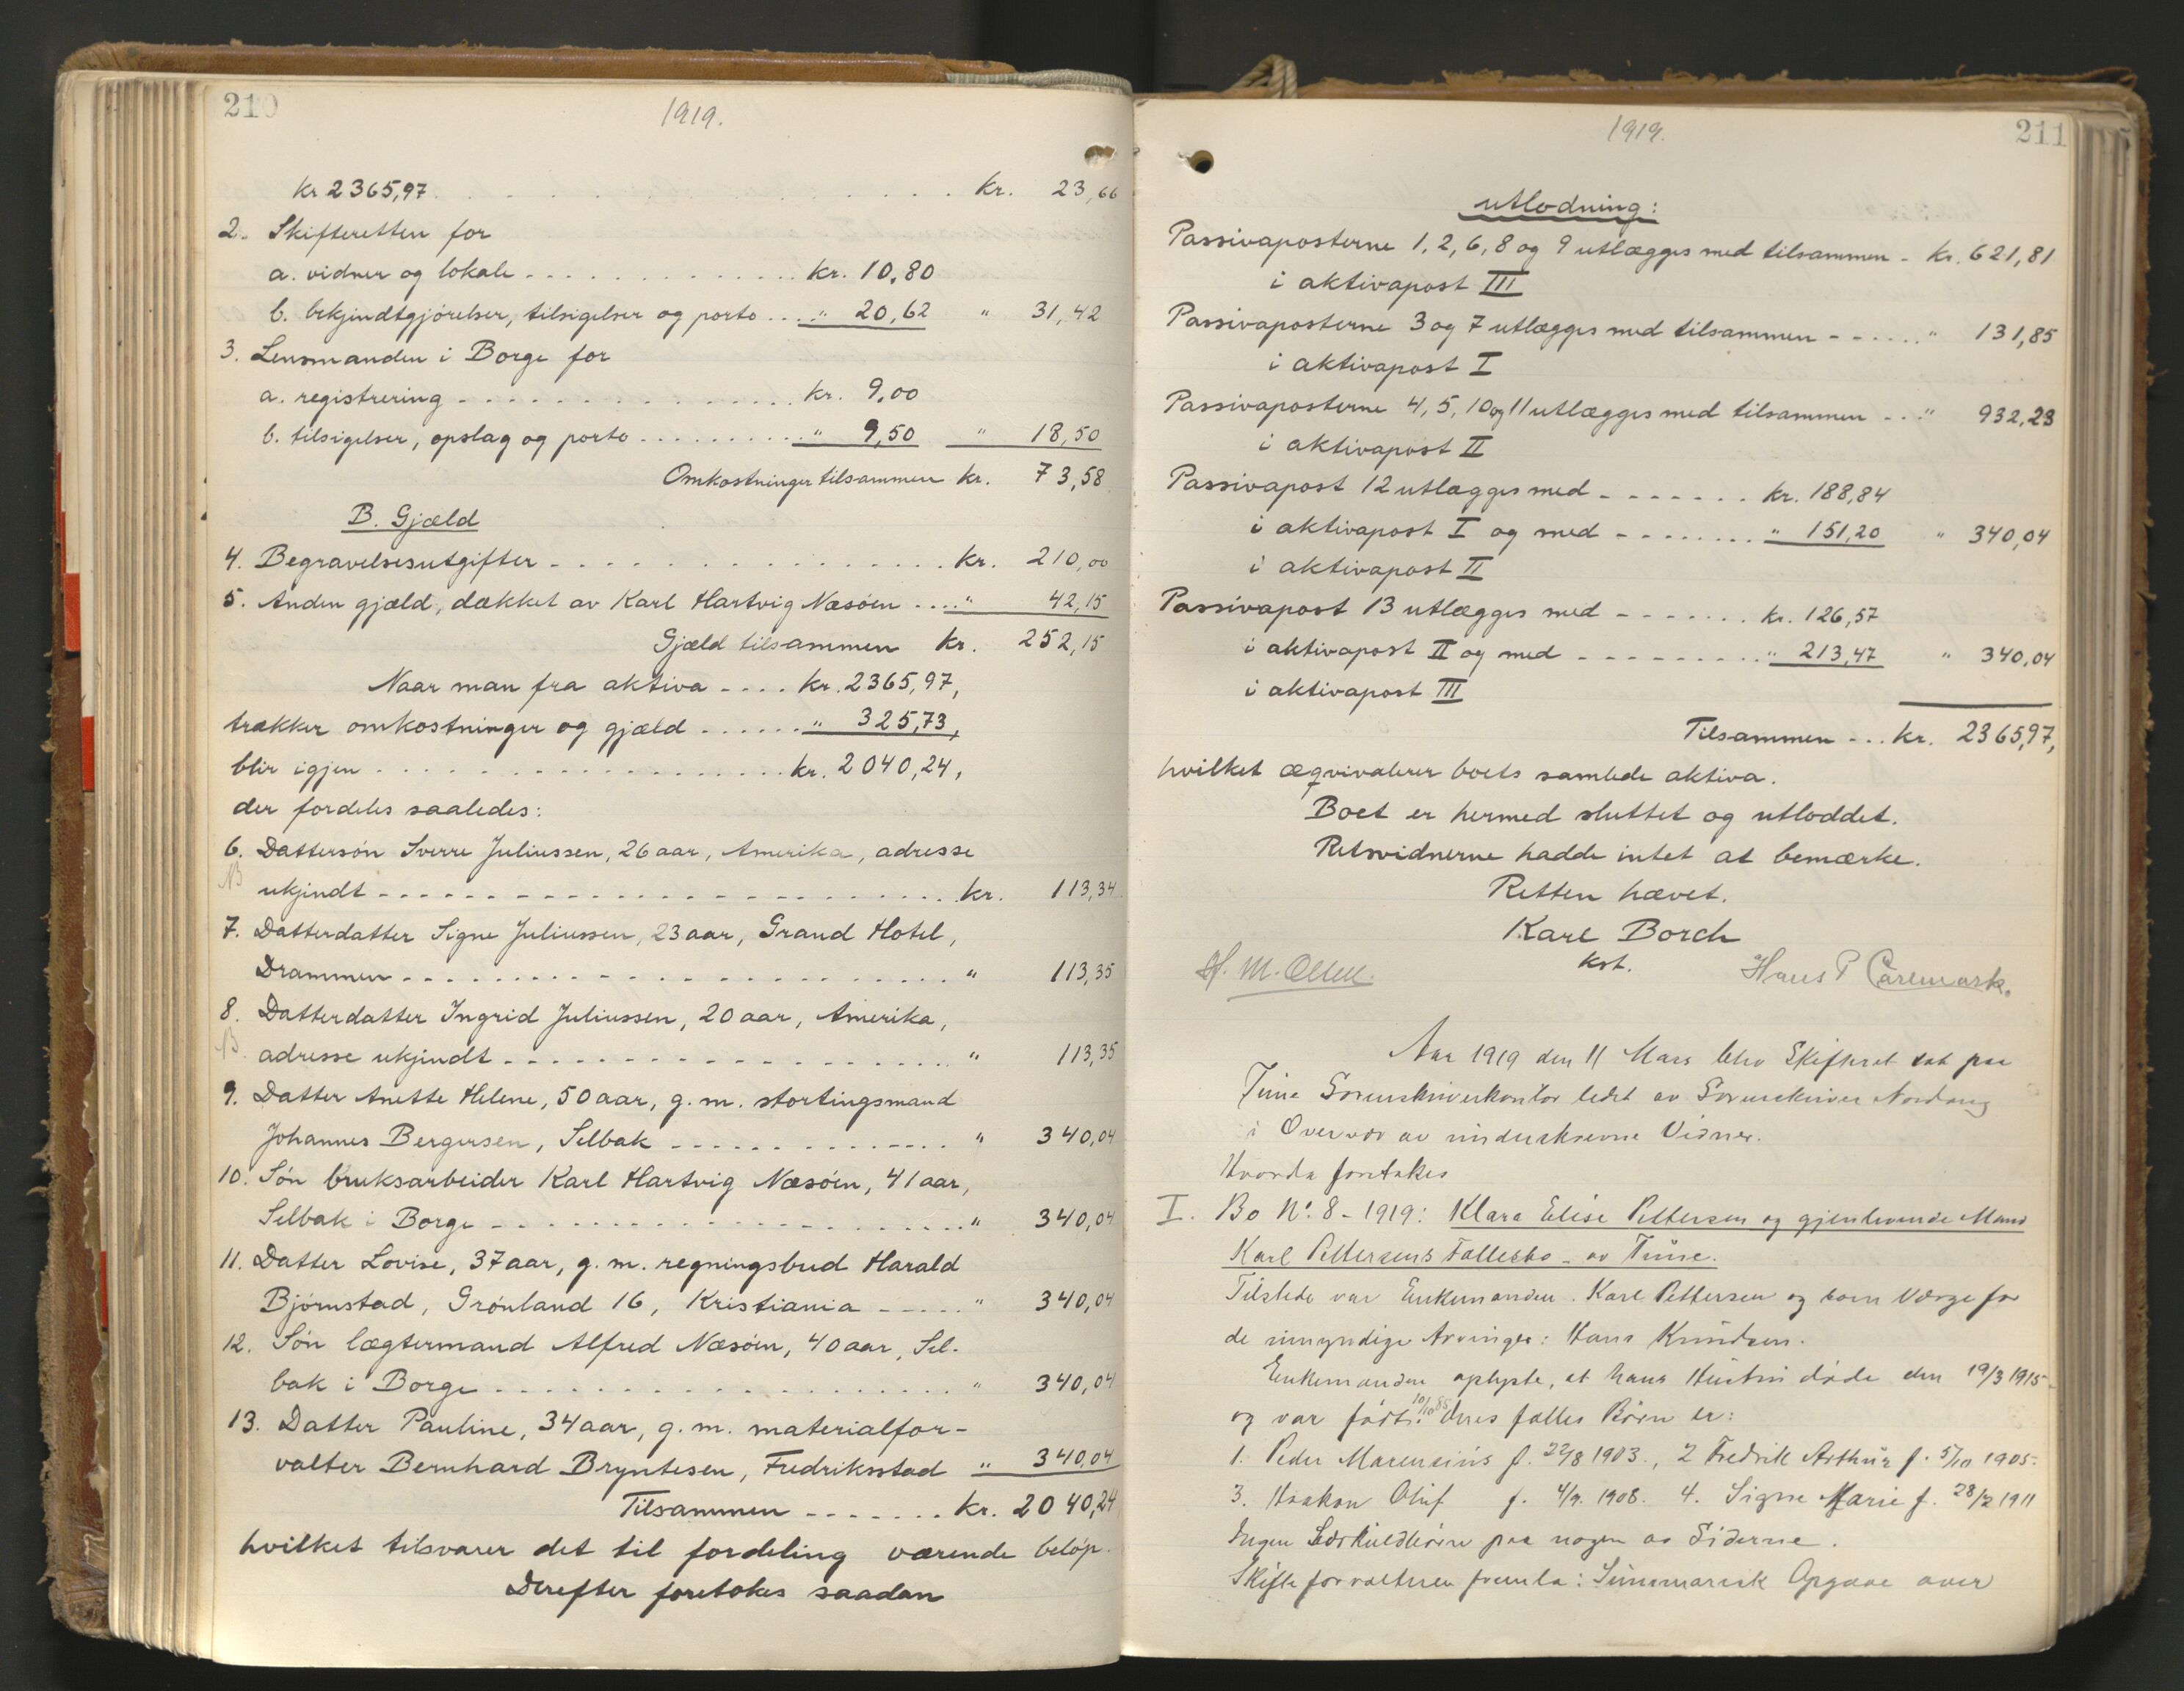 210
1919.
kr 2365,97. . . . . . . . . . kr. 23,66
2. Skifteretten for
a. vidner og lokale - . . . . . . kr. 10,80
b. bekjendtgjørelser, tilsigelser og porto . . . " 20,62 " 31,42
3. Lensmanden i Borge for
a. registrering - . . . . . . . kr. 9,00
b. tilsigelser, opslag og porto . . . . . . " 9,50 " 18,50
Omkostninger tilsammen kr. 73,58
B. Gjæld
4. Begravelsesutgifter - . . . . . . . . kr. 210,00
5. Anden gjæld, dækket av Karl Hartvig Næsøen . . . . " 42,15
Gjæld tilsammen kr. 252,15
Naar man fra aktiva - . . . kr. 2365,97,
trækker omkostninger og gjæld . . . . . . " 325,73,
blir igjen . . . . . . . . . kr. 2040,24,
der fordeles saaledes:
6. Dattersøn Sverre Juliussen, 26 aar, Amerika, adresse
NB ukjendt - - - - - - - - - - kr. 113,34
7. Datterdatter Signe Juliussen, 23 aar, Grand Hotel,
Drammen - - - - - - - - - - " 113,35
8. Datterdatter Ingrid Juliussen, 20 aar, Amerika,
NB. adresse ukjendt - - - - - - - - " 113,35
9. Datter Anette Helene, 50 aar, g. m. stortingsmand
Johannes Bergersen, Selbak - - - - - - " 340,04
10. Søn bruksarbeider Karl Hartvig Næsøen, 41 aar,
Selbak i Borge - - - - - - - - - " 340,04
11. Datter Lovise, 37 aar, g. m. regningsbud Harald
Bjørnstad, Grønland 16, Kristiania - - - - " 340,04
12. Søn lægtermand Alfred Næsøen, 40 aar, Sel-
bak i Borge - - - - - - - - - " 340,04
13. Datter Pauline, 34 aar, g. m. materialfor-
valter Bernhard Bryntesen, Fredriksstad " 340,04
Tilsammen - - - - - - - kr. 2040,24
hvilket tilsvarer det til fordeling værende beløp.
Derefter foretokes saadan
1919.
211
utlodning:
Passivaposterne 1, 2, 6, 8 og 9 utlægges med tilsammen - kr. 621,81
i aktivapost III
Passivaposterne 3 og 7 utlægges med tilsammen - - . . . . " 131,85
i aktivapost I
Passivaposterne 4, 5, 10 og 11 utlægges med tilsammen - . . " 932,23
i aktivapost II
Passivapost 12 utlægges med - - - - - - kr. 188,84
i aktivapost I og med - - - - - - - " 151,20 " 340,04
i aktivapost II
Passivapost 13 utlægges med - - - - - - kr. 126,57
i aktivapost II og med - - - - - - - " 213,47 " 340,04
i aktivapost III
Tilsammen - . . kr. 2365,97,
hvilket æqvivalerer boets samlede aktiva.
Boet er hermed sluttet og utloddet.
Retsvidnerne hadde intet at bemærke.
Retten hævet.
Karl Borch
kst.
H. M. Hans P Caremark.
Aar 1919 den 11 Mars blev Skifteret sat paa
Tune Sorenskriverkontor ledet av Sorenskriver Nordang
i Overvær av underskrevne Vidner.
Hvorda foretakes
I. Bo No. 8 - 1919: Klara Elise Pettersen og gjenlevende Mand
Karl Pettersens Fællesbo - av Tune.
Tilstede var Enkemanden Karl Pettersen og som Værge for
de umyndige Arvinger: Hans Knudsen.
Enkemanden oplyste, at hans Hustru døde den 19/3 1915
og var født 10/10 85. deres fælles Børn er:
1. Peder Marensius f. 22/8 1903., 2 Fredrik Arthur f. 5/10 1905.
3. Haakon Oluf f. 4/9. 1908. 4. Signe Marie f. 28/2 1911
Ingen Særkuldbørn paa nogen av Siderne.
Skifteforvalteren fremla: Summarisk Opgave over